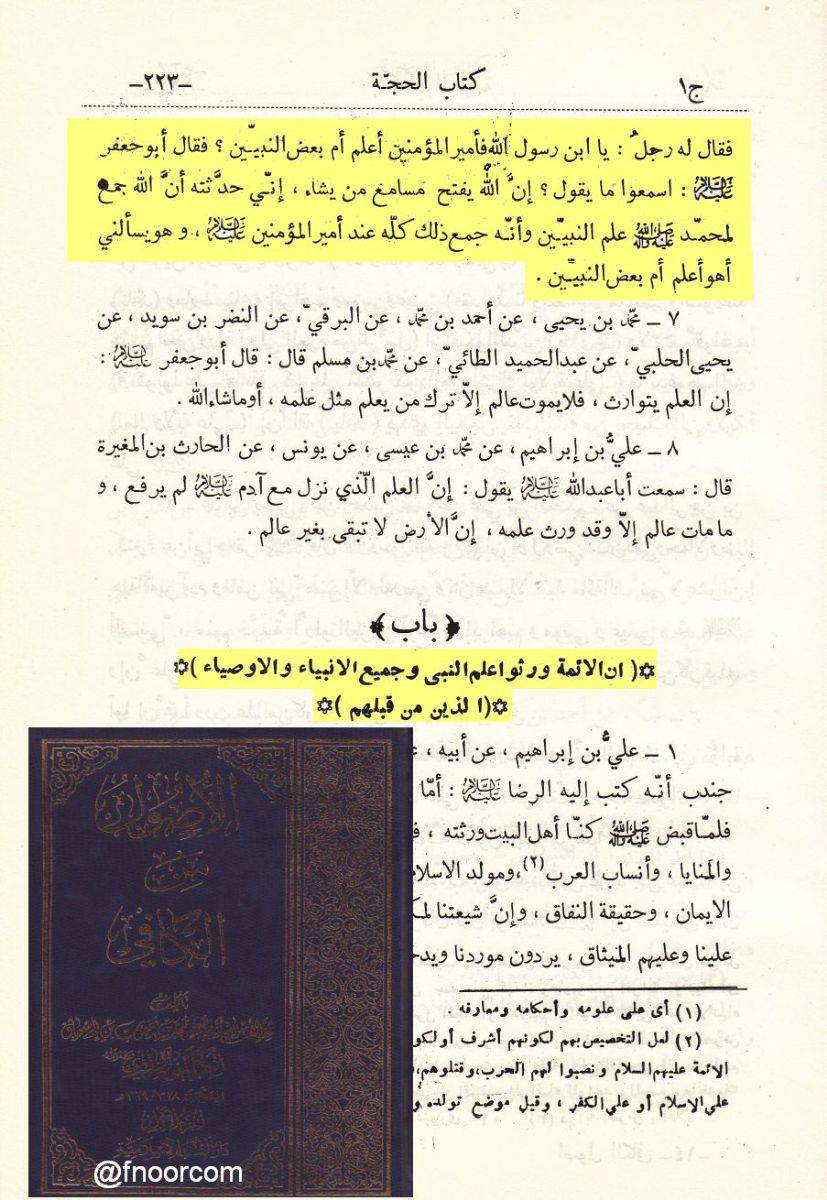 ج۱ كتاب الحجّة -۲۲۳-
فقال له رجلٌ : يا ابن رسول الله فأمير المؤمنين أعلم أم بعض النبيّين ؟ فقال أبوجعفر
عليه السلام : اسمعوا ما يقول ؟ إنَّ اللّه يفتح مسامع من يشاء ، إنّي حدَّثته أنَّ الله جمع
لمحمّد صلى الله عليه وآله علم النبيّين وأنّه جمع ذلك كلّه عند أمير المؤمنين عليه السلام ، و هو يسألني
أهو أعلم أم بعض النبيّين .
٧ ــ محمّد بن يحيى ، عن أحمد بن محمّد ، عن البرقيّ ، عن النضر بن سويد ، عن
يحيى الحلبيّ ، عن عبدالحميد الطائيّ ، عن محمّد بن مسلم قال : قال أبوجعفر عليه السلام :
إن العلم يتوارث ، فلايموت عالم إلاّ ترك من يعلم مثل علمه ، أوماشاءالله .
٨ ــ عليُّ بن إبراهيم ، عن محمّد بن عيسى ، عن يونس ، عن الحارث بن المغيرة
قال : سمعت أباعبدالله عليه السلام يقول : إنَّ العلم الّذي نزل مع آدم عليه السلام لم يرفع ، و
مامات عالم إلاّ وقد ورث علمه ، إنَّ الأرض لا تبقى بغير عالم .
﴿ باب ﴾
۞( ان الائمة ورثوا علم النبى وجميع الانبياء والاوصياء )۞
۞(الذين من قبلهم )۞
١ ــ عليُّ بن إبراهيم ، عن أبيه ،
جندب أنّه كتب إليه الرضا عليه السلام : أمّا
فلمّا قبض صلى الله عليه وآله كنّا أهل البيت ورثته ،
والمنايا ، وأنساب العرب(٢)،ومولد الاسلام
الايمان ، وحقيقة النفاق ، وإنَّ شيعتنا
علينا وعليهم الميثاق ، يردون موردنا
(١) أى على علومه وأحكامه ومعارفه .
(٢) لعل التخصيص بهم لكونهم أشرف أولكو
الائمة عليهم السلام ونصبوا لهم الحرب، وقتلوهم،
على الاسلام أو على الكفر ، وقيل موضع تولده
الأصول
من
الكافي
@fnoorcom